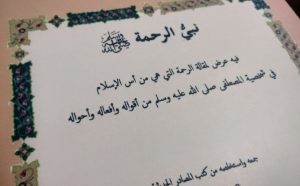 نبيُّ الرحمة ﷺ
فيه عرض لمقالة الرحمة التي هي من أس الإسلام
في شخصية المصطفى صلى الله عليه وسلم من أقواله وأفعاله وأحواله
جمعه واستخلصه من كتب المصادر